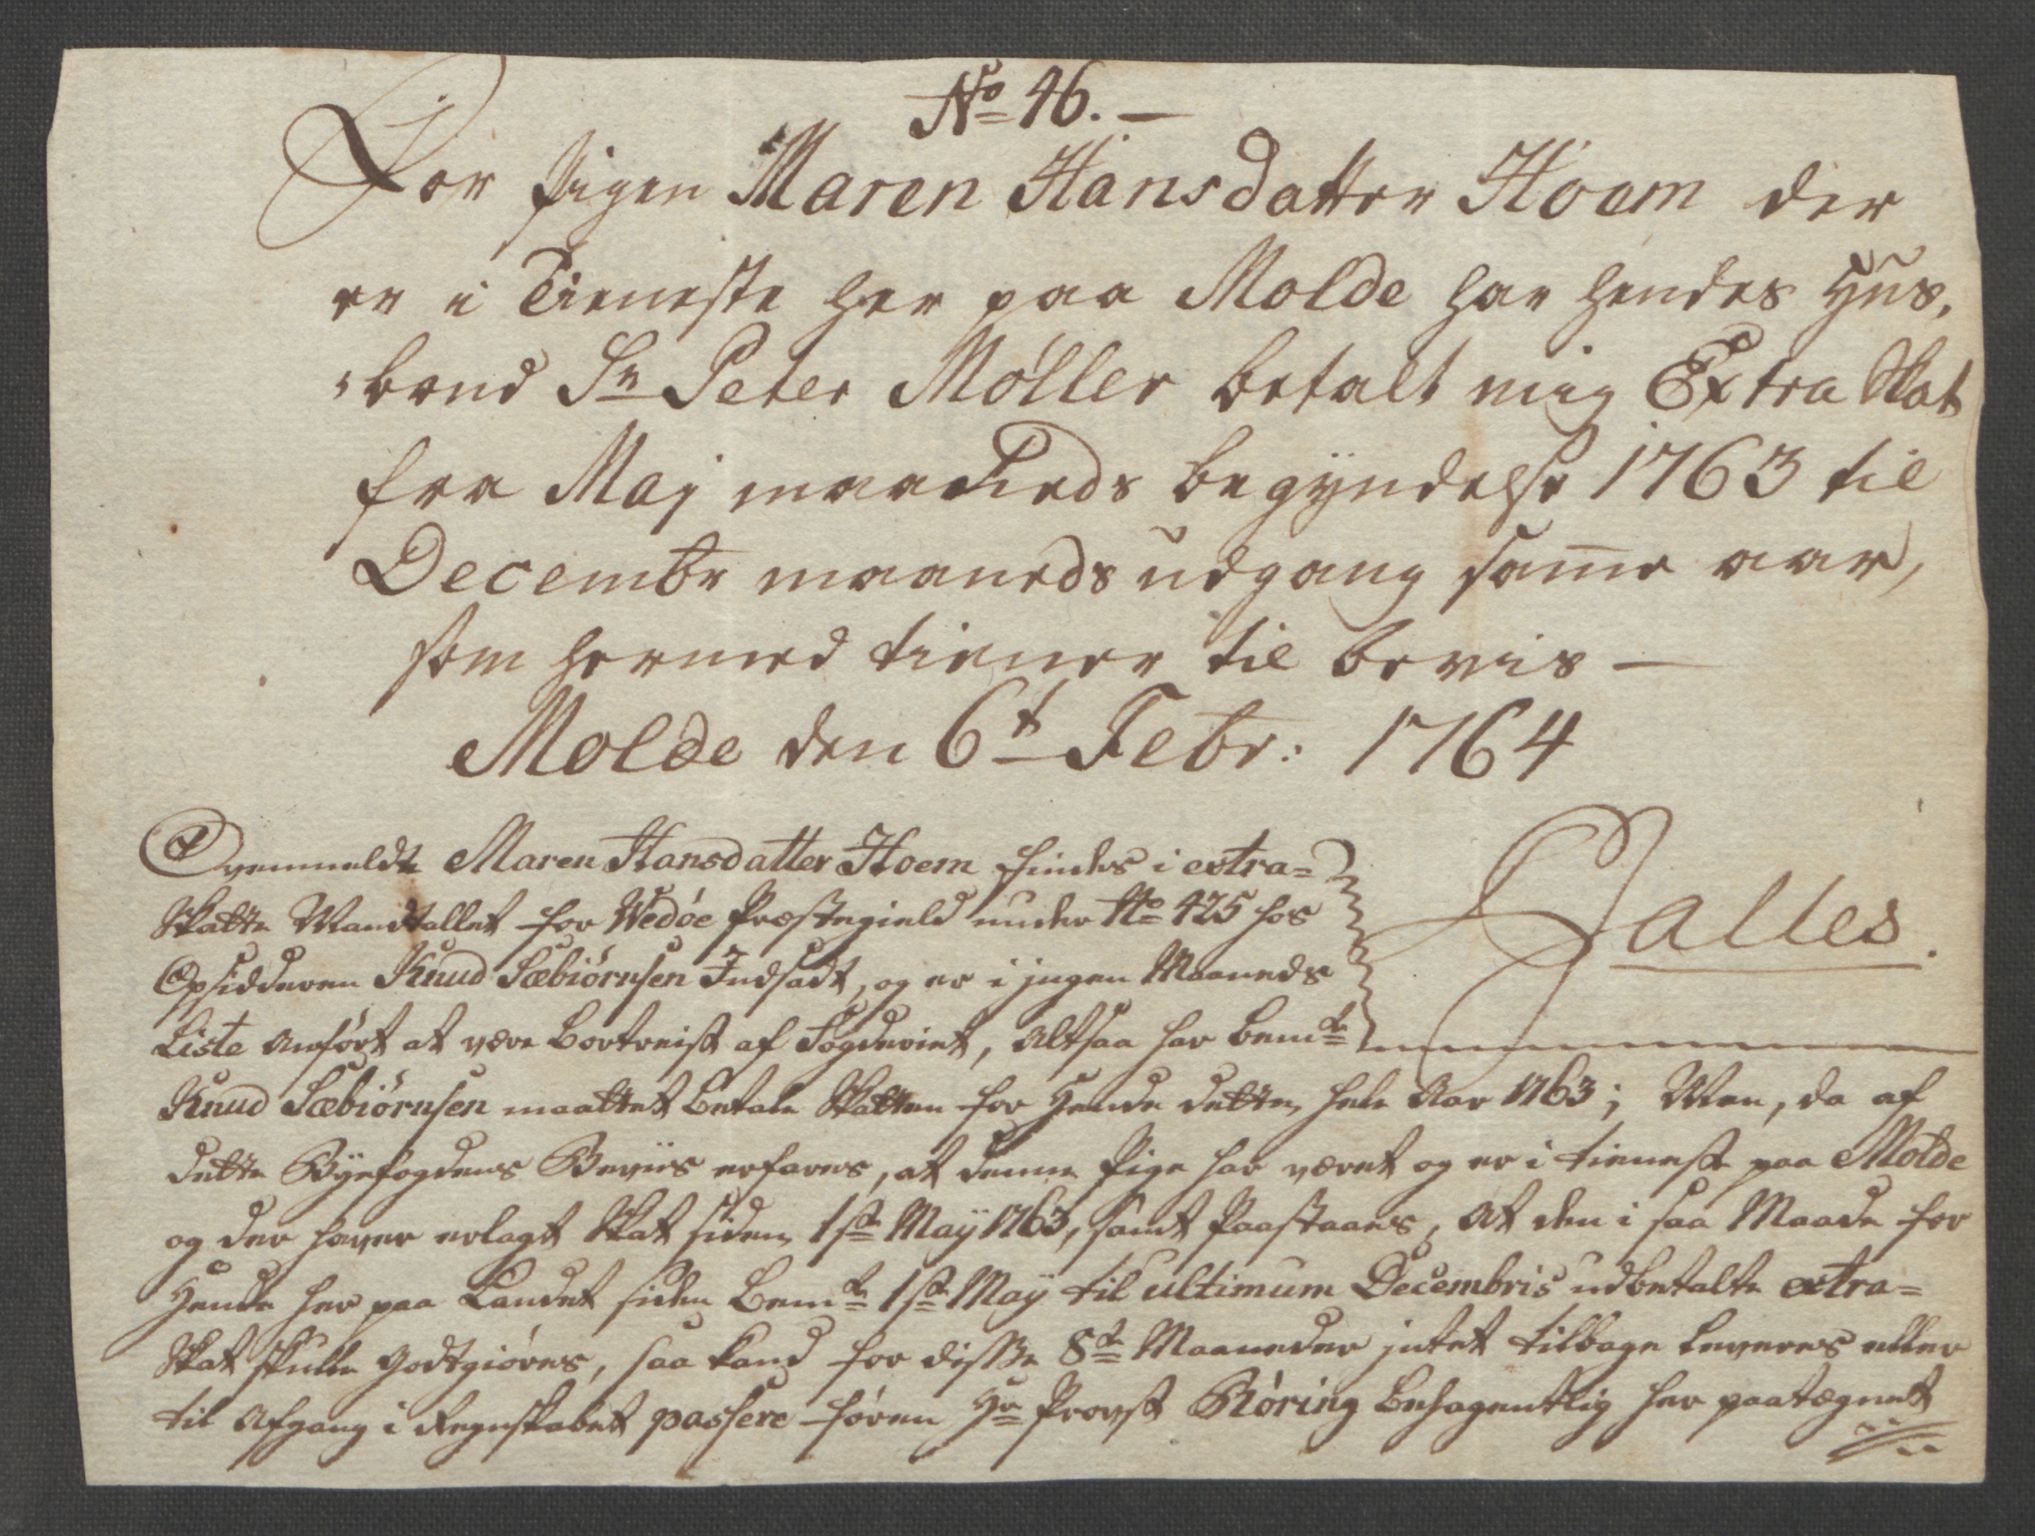 No 46. —
For Pigen Maren Hansdatter Hoem der
er i Tieneste her paa Molde har hendes Hus,
,bond Sr Peter Möller betalt mig Extra Skat
fra Maj maaneds begÿndelse 1763 til
Decembr maaneds udgang samme aar,
som hermed tiener til bevis —
Molde den 6t Febr: 1764
Ovenmeldte Maren Hansdatter Hoem findes i extra=
Skatte Mandtallet for Wedøe Præstegield under No 425 hos
Opsidderen Knud Sæbiørnsen Indsadt, og er i jngen Maaneds
Liste Anført at være bortreist af Fogderiet, Altsaa har bemte
Knud Sæbiørnsen maattet betale Skatten for Hende dette hele Aar 1763; Men, da af
dette Byefogdens Beviis erfares, at denne Pige har været og er i tieneste paa Molde
og der haver erlagt Skat siden 1ste Maÿ 1763, samt Paastaaes, At den i saa Maade for
Hende her paa Landet siden Bemte 1ste Maÿ til ultimum Decembris udbetalte extra=
Skat skulle Godtgiøres, saa kand for disse 8te Maaneder jntet tilbage leveres eller
til Afgang i Regnskabet passere førend Hr Provst Röring behagentlig her paategnet